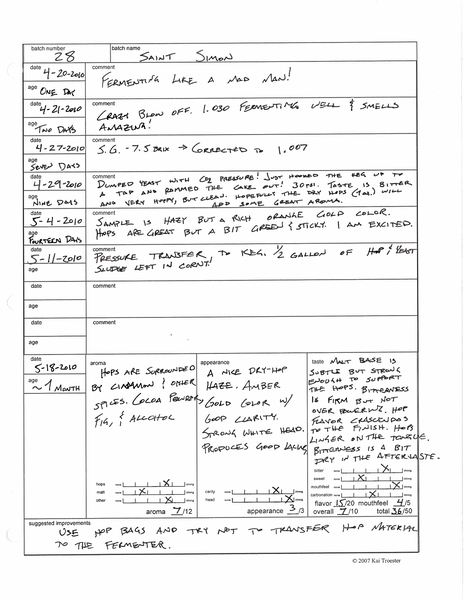 batch number batch name
28 SAINT SIMON
date comment
4-20-2010 FERMENTING LIKE A MAD MAN!
age ONE DAY
date comment
4-21-2010 CRAZY BLOW OFF. 1.030 FERMENTING WELL & SMELLS
age AMAZING!
TWO DAYS
date comment
4-27-2010 S.G. - 7.5 BRIX → CORRECTED TO 1.007
age
SEVEN DAYS
date comment
4-29-2010 DUMPED YEAST WITH CO2 PRESSURE! JUST HOOKED THE KEG UP TO
A TAP AND RAMMED THE CAKE OUT! 30PSI. TASTE IS BITTER
age AND VERY HOPPY, BUT CLEAN. HOPEFULLY THE DRY HOPS (4oz.) WILL
NINE DAYS ADD SOME GREAT AROMA.
date comment
5-4-2010 SAMPLE IS HAZY BUT A RICH ORANGE GOLD COLOR.
age HOPS ARE GREAT BUT A BIT GREEN & STICKY. I AM EXCITED.
FOURTEEN DAYS
date comment
5-11-2010 PRESSURE TRANSFER TO KEG. 1/2 GALLON OF HOP & YEAST
age SLUDGE LEFT IN CORNY!
date comment
age
date comment
age
date
5-18-2010
age
~1 MONTH
aroma
HOPS ARE SURROUNDED
BY CINNAMON & OTHER
SPICES. COCOA POWDER,
FIG, & ALCOHOL
hops
malt
other
aroma 7/12
appearance
A NICE DRY-HOP
HAZE. AMBER
GOLD COLOR W/
GOOD CLARITY.
STRONG WHITE HEAD.
PRODUCES GOOD LACING
clarity
head
appearance 3/3
taste MALT BASE IS
SUBTLE BUT STRONG
ENOUGH TO SUPPORT
THE HOPS. BITTERNESS
IS FIRM BUT NOT
OVER POWERING. HOP
FLAVOR CRESCENDOS
TO THE FINISH. HOPS
LINGER ON THE TONGUE.
BITTERNESS IS A BIT
DRY IN THE AFTERTASTE.
bitter
sweet
mouthfeel
carbonation
flavor 15/20 mouthfeel 4/5
overall 7/10 total 36/50
suggested improvements
USE HOP BAGS AND TRY NOT TO TRANSFER HOP MATERIAL
TO THE FERMENTER.
© 2007 Kai Troester